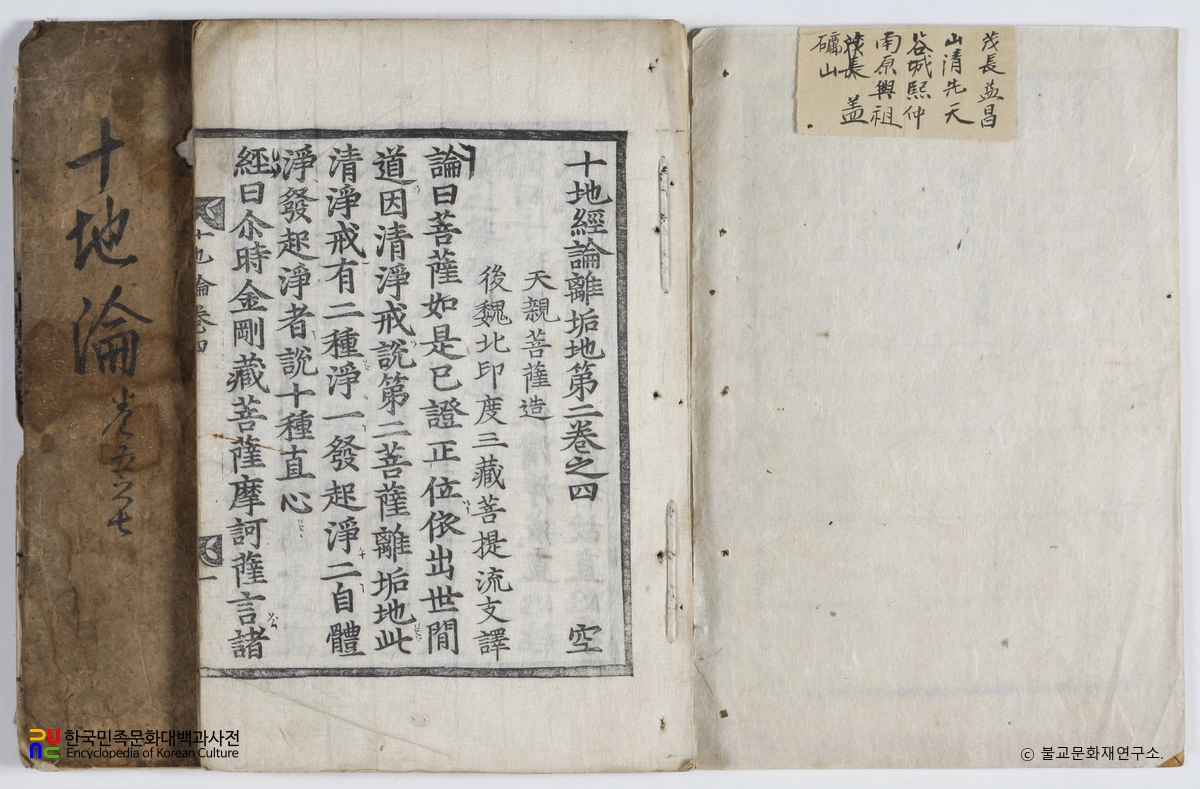 茂長益昌
山清先天
谷城熙仲
南原興祖
茂長 盖
礪山
十地經論離垢地第二卷之四 空
天親菩薩造
後魏北印度三藏菩提流支譯
論曰菩薩如是已證正位依出世間
道因清淨戒說第二菩薩離垢地此
清淨戒有二種淨一發起淨二自體
淨發起淨者說十種直心
經曰尒時金剛藏菩薩摩訶薩言諸
十地論卷四
一
十地論 卷五六七
한국민족문화대백과사전
Encyclopedia of Korean Culture
ⓒ 불교문화재연구소.